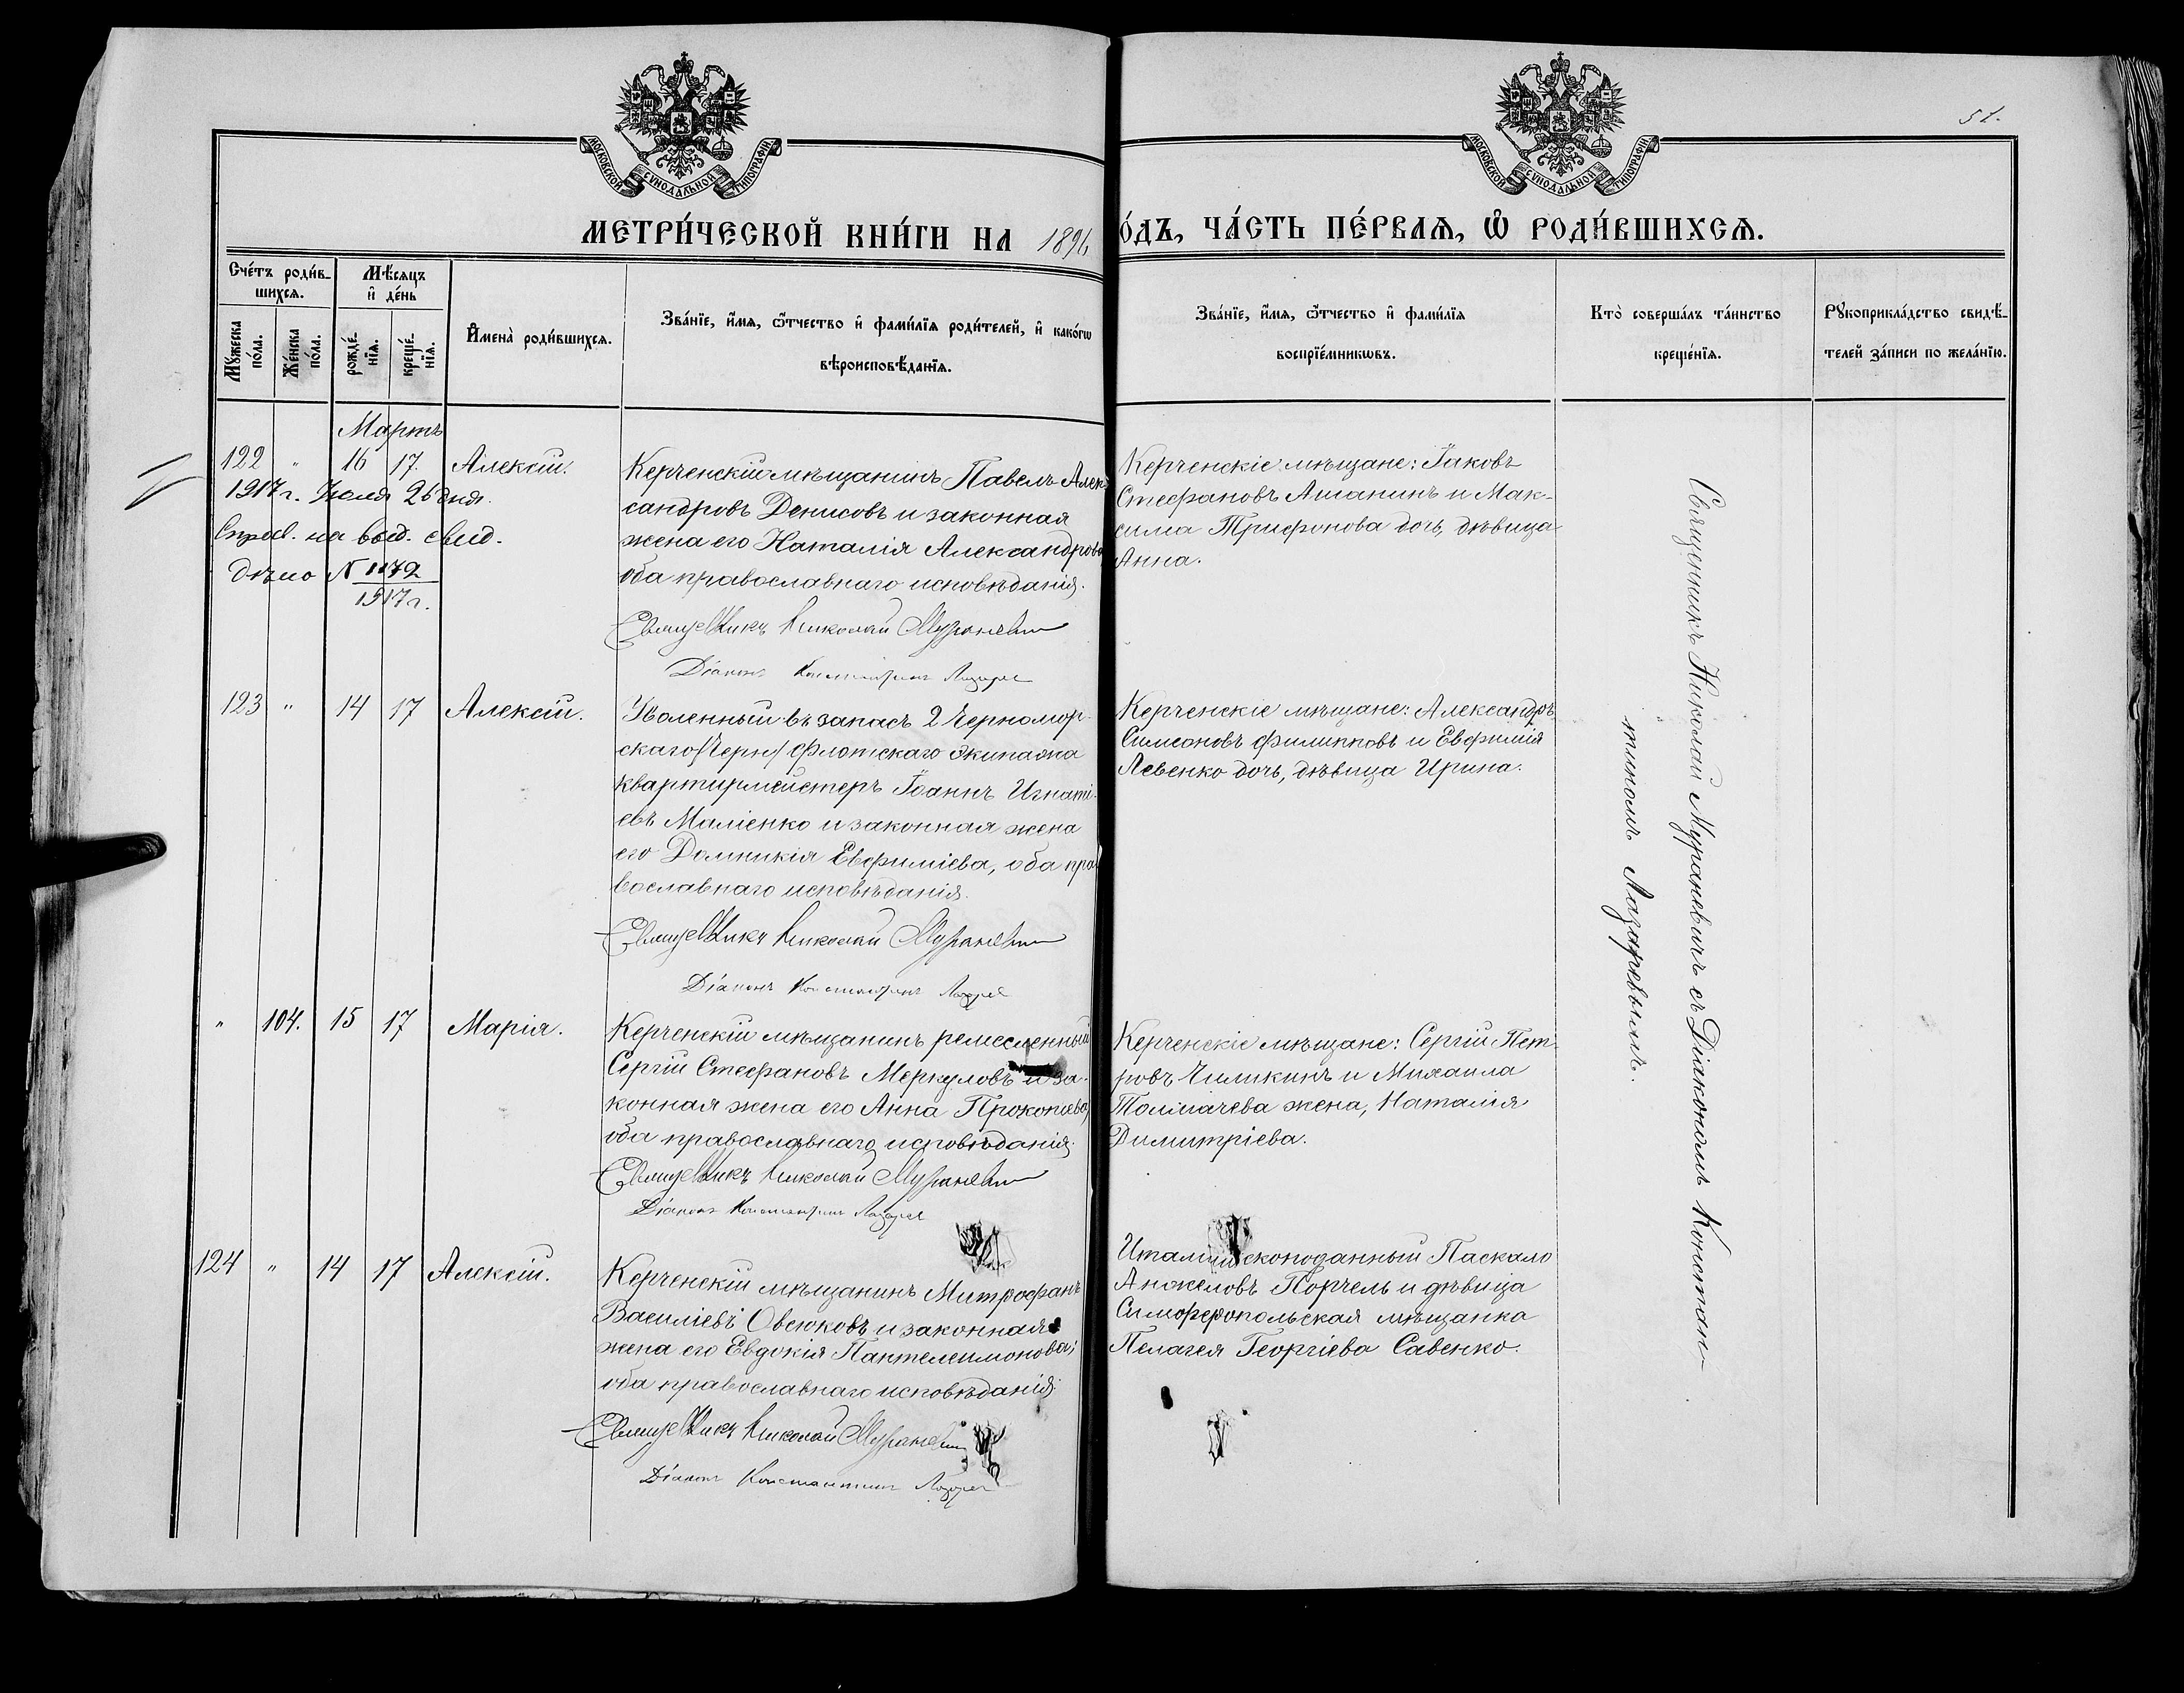 51.
МОСКОВСКОЙ СѴНОДАЛЬНОЙ ТИПОГРАФІИ
МОСКОВСКОЙ СѴНОДАЛЬНОЙ ТИПОГРАФІИ
МЕТРИ́ЧЕСКОЙ КНИ́ГИ НА 1896
О́ДЪ, ЧА́СТЬ ПЕ́РВАѦ, Ѽ РОДИ́ВШИХСѦ.
Сче́тъ роди́в-
шихсѧ.
Мꙋ́жеска по́ла.
Же́нска по́ла.
Мѣ́сяцъ
и҆ де́нь
рожде́-нїѧ.
креще́-нїѧ.
И҆мена̀ роди́вшихсѧ.
Зва́нїе, и҆́мѧ, ѻ҆́тчество и҆ фами́лїѧ роди́телей, и҆ како́гѡ
вѣроисповѣ́данїѧ.
Зва́нїе, и҆́мѧ, ѻ҆́тчество и҆ фами́лїѧ
воспрїе́мникѡвъ.
Кто̀ соверша́лъ та́инство
креще́нїѧ.
Рꙋкоприкла́дство свидѣ́-
телей за́писи по жела́нїю.
Мартъ
122 " 16 17. Алексій.
1917 г. Іюля 26 дня.
Справ. на выд. свид.
дѣло № 1172
1917 г.
Керченскій мѣщанинъ Павелъ Алек-
сандровъ Денисовъ и законная
жена его Наталія Александрова
оба православнаго исповѣданія.
Священникъ Николай Мураневичъ
Діаконъ Константинъ Лазарев
Керченскіе мѣщане: Іаковъ
Стефановъ Ашанинъ и Мак-
сима Трифонова дочь, дѣвица
Анна.
123 " 14 17 Алексій.
Уволенный въ запасъ 2 Черномор-
скаго /Черн/ Флотскаго Экипажа
квартирмейстеръ Іоаннъ Игнаті-
евъ Маліенко и законная жена
его Домникія Евфиміева, оба пра-
вославнаго исповѣданія.
Священникъ Николай Мураневичъ
Діаконъ Константинъ Лазарев
Керченскіе мѣщане: Александръ
Симеоновъ Филипповъ и Евфимія
Левенко дочь, дѣвица Ирина.
" 104. 15 17 Марія.
Керченскій мѣщанинъ ремесленный
Сергій Стефановъ Меркуловъ и за-
конная жена его Анна Прокопиева,
оба православнаго исповѣданія.
Священникъ Николай Мураневичъ
Діаконъ Константинъ Лазарев
Керченскіе мѣщане: Сергій Пет-
ровъ Чиликинъ и Михаила
Толмачева жена, Наталія
Димитріева.
124 " 14 17 Алексій.
Керченскій мѣщанинъ Митрофанъ
Василіевъ Овсюковъ и законная
жена его Евдокія Пантелеимонова;
оба православнаго исповѣданія.
Священникъ Николай Мураневичъ
Діаконъ Константинъ Лазарев
Италиянскоподанный Паскало
Анжеловъ Порчель и дѣвица
Симферопольская мѣщанка
Пелагея Георгіева Савенко.
Священникъ Николай Мураневичъ съ Діакономъ Констан-
тиномъ Лазаревымъ.